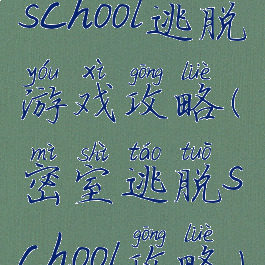 school逃脱
yóu xì gōng lüè
游戏攻略(
mì shì táo tuō
密室逃脱s
gōng lüè
chool攻略)